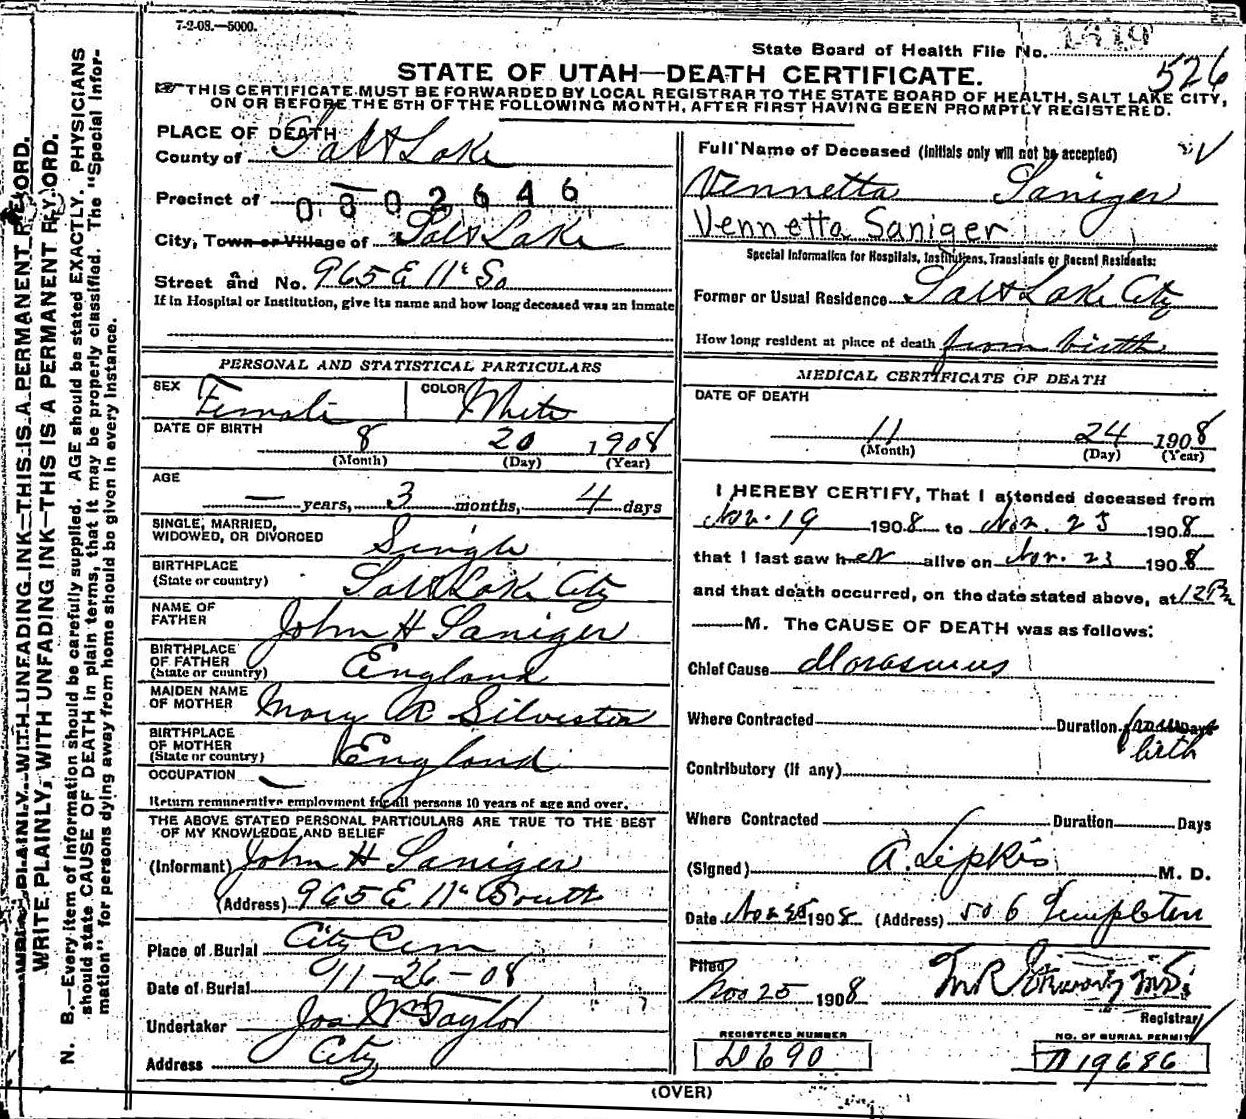 7-2-08.—5000.
State Board of Health File No. 1819
526
STATE OF UTAH—DEATH CERTIFICATE.
THIS CERTIFICATE MUST BE FORWARDED BY LOCAL REGISTRAR TO THE STATE BOARD OF HEALTH, SALT LAKE CITY,
ON OR BEFORE THE 5TH OF THE FOLLOWING MONTH, AFTER FIRST HAVING BEEN PROMPTLY REGISTERED.
WRITE PLAINLY WITH UNFADING INK—THIS IS A PERMANENT RECORD.
WRITE PLAINLY, WITH UNFADING INK—THIS IS A PERMANENT RECORD.
N. B.—Every item of information should be carefully supplied. AGE should be stated EXACTLY. PHYSICIANS
should state CAUSE OF DEATH in plain terms, that it may be properly classified. The "Special Infor-
mation" for persons dying away from home should be given in every instance.
PLACE OF DEATH
County of Salt Lake
Precinct of 0302646
City, Town or Village of Salt Lake
Street and No. 965 E 11th So
If in Hospital or Institution, give its name and how long deceased was an inmate
PERSONAL AND STATISTICAL PARTICULARS
SEX Female COLOR White
DATE OF BIRTH 8 20 1908
(Month) (Day) (Year)
AGE
— years, 3 months, 4 days
SINGLE, MARRIED,
WIDOWED, OR DIVORCED Single
BIRTHPLACE
(State or country) Salt Lake City
NAME OF
FATHER John H Saniger
BIRTHPLACE
OF FATHER
(State or country) England
MAIDEN NAME
OF MOTHER Mary A Silvester
BIRTHPLACE
OF MOTHER
(State or country) England
OCCUPATION —
Return remunerative employment for all persons 10 years of age and over.
THE ABOVE STATED PERSONAL PARTICULARS ARE TRUE TO THE BEST
OF MY KNOWLEDGE AND BELIEF
(Informant) John H Saniger
(Address) 965 E 11th South
Place of Burial City Cem
Date of Burial 11-26-08
Undertaker Jos Wm Taylor
Address City
Full Name of Deceased (Initials only will not be accepted)
Vennetta Saniger
Vennetta Saniger
Special Information for Hospitals, Institutions, Transients or Recent Residents:
Former or Usual Residence Salt Lake City
How long resident at place of death from birth
MEDICAL CERTIFICATE OF DEATH
DATE OF DEATH
11 24 1908
(Month) (Day) (Year)
I HEREBY CERTIFY, That I attended deceased from
Nov. 19 1908 to Nov. 23 1908
that I last saw her alive on Nov. 23 1908
and that death occurred, on the date stated above, at 12
—M. The CAUSE OF DEATH was as follows:
Chief Cause Marasmus
Where Contracted Duration from Days
birth
Contributory (if any)
Where Contracted Duration Days
(Signed) A. Lipkis M. D.
Date Nov 25 1908 (Address) 506 Templeton
Filed
Nov 25 1908
Registrar
REGISTERED NUMBER
D690
NO. OF BURIAL PERMIT
A19686
(OVER)